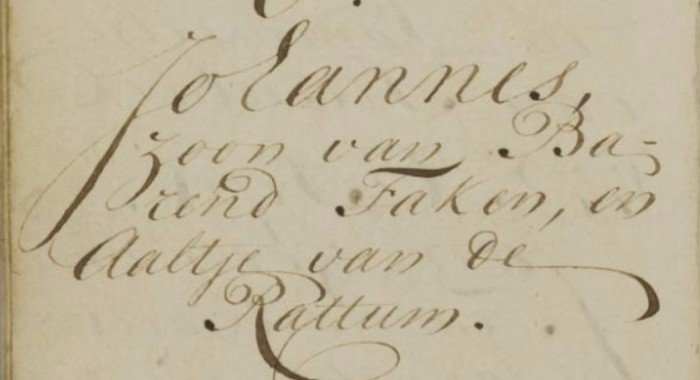 Johannes,
zoon van Ba-
rend Faken, en
Aaltje van de
Rattum.